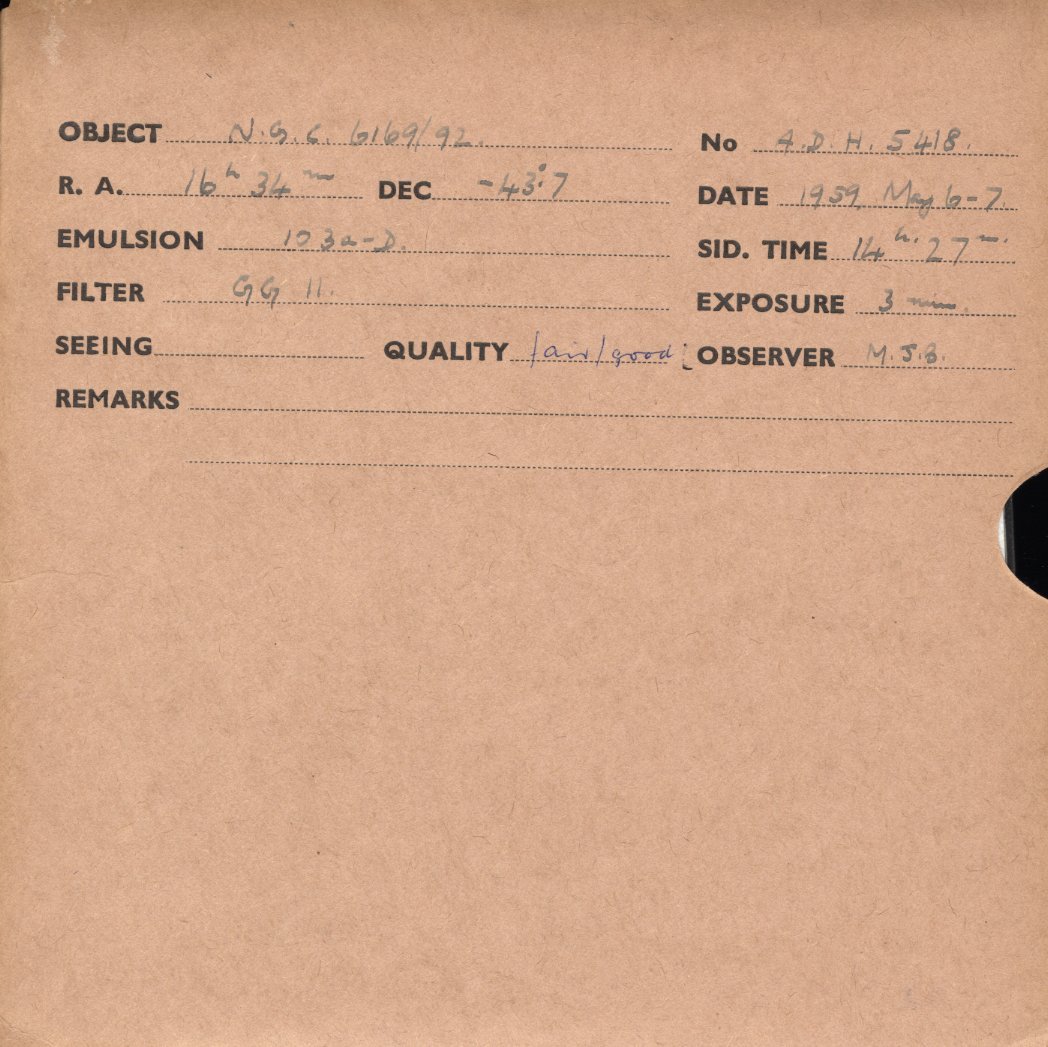 OBJECT N.G.C. 6169/92. No A.D.H. 5418.
R. A. 16h 34m DEC -43°.7 DATE 1959 May 6-7
EMULSION 103a-D. SID. TIME 14h. 27m.
FILTER GG 11. EXPOSURE 3 min.
SEEING QUALITY fair/good OBSERVER M.J.B.
REMARKS